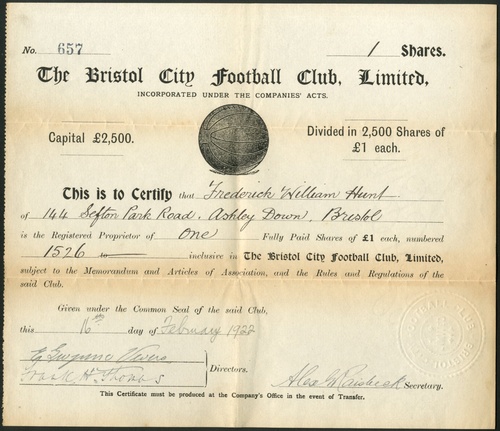 No. 657
1 Shares.
The Bristol City Football Club, Limited,
INCORPORATED UNDER THE COMPANIES' ACTS.
Capital £2,500.
Divided in 2,500 Shares of
£1 each.
This is to Certify that Frederick William Hunt
of 144 Sefton Park Road, Ashley Down, Bristol
is the Registered Proprietor of One Fully Paid Shares of £1 each, numbered
1526 to inclusive in The Bristol City Football Club, Limited,
subject to the Memorandum and Articles of Association, and the Rules and Regulations of the
said Club.
Given under the Common Seal of the said Club,
this 16th day of February 1922
Frank H. Thomas
Directors.
Alex G Raisbeck Secretary.
This Certificate must be produced at the Company's Office in the event of Transfer.